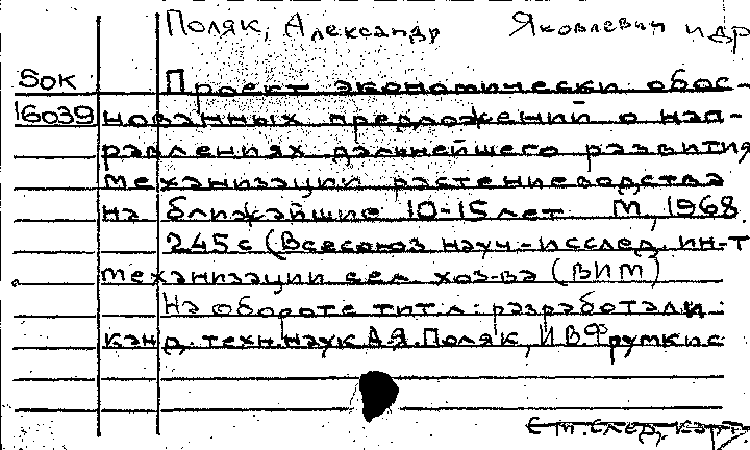 Поляк, Александр Яковлевич и др
Бок Проект экономически обос-
16039 нованных предложений о нап-
равлениях дальнейшего развития
механизации растениеводства
на ближайшие 10-15 лет. М., 1968.
245с (Всесоюз науч.-исслед. ин-т
механизации сел. хоз-ва (ВИМ)
На обороте тит.л: разработали:
канд. техн.наук А.Я.Поляк, И В Фрумкис
См.след.карт.